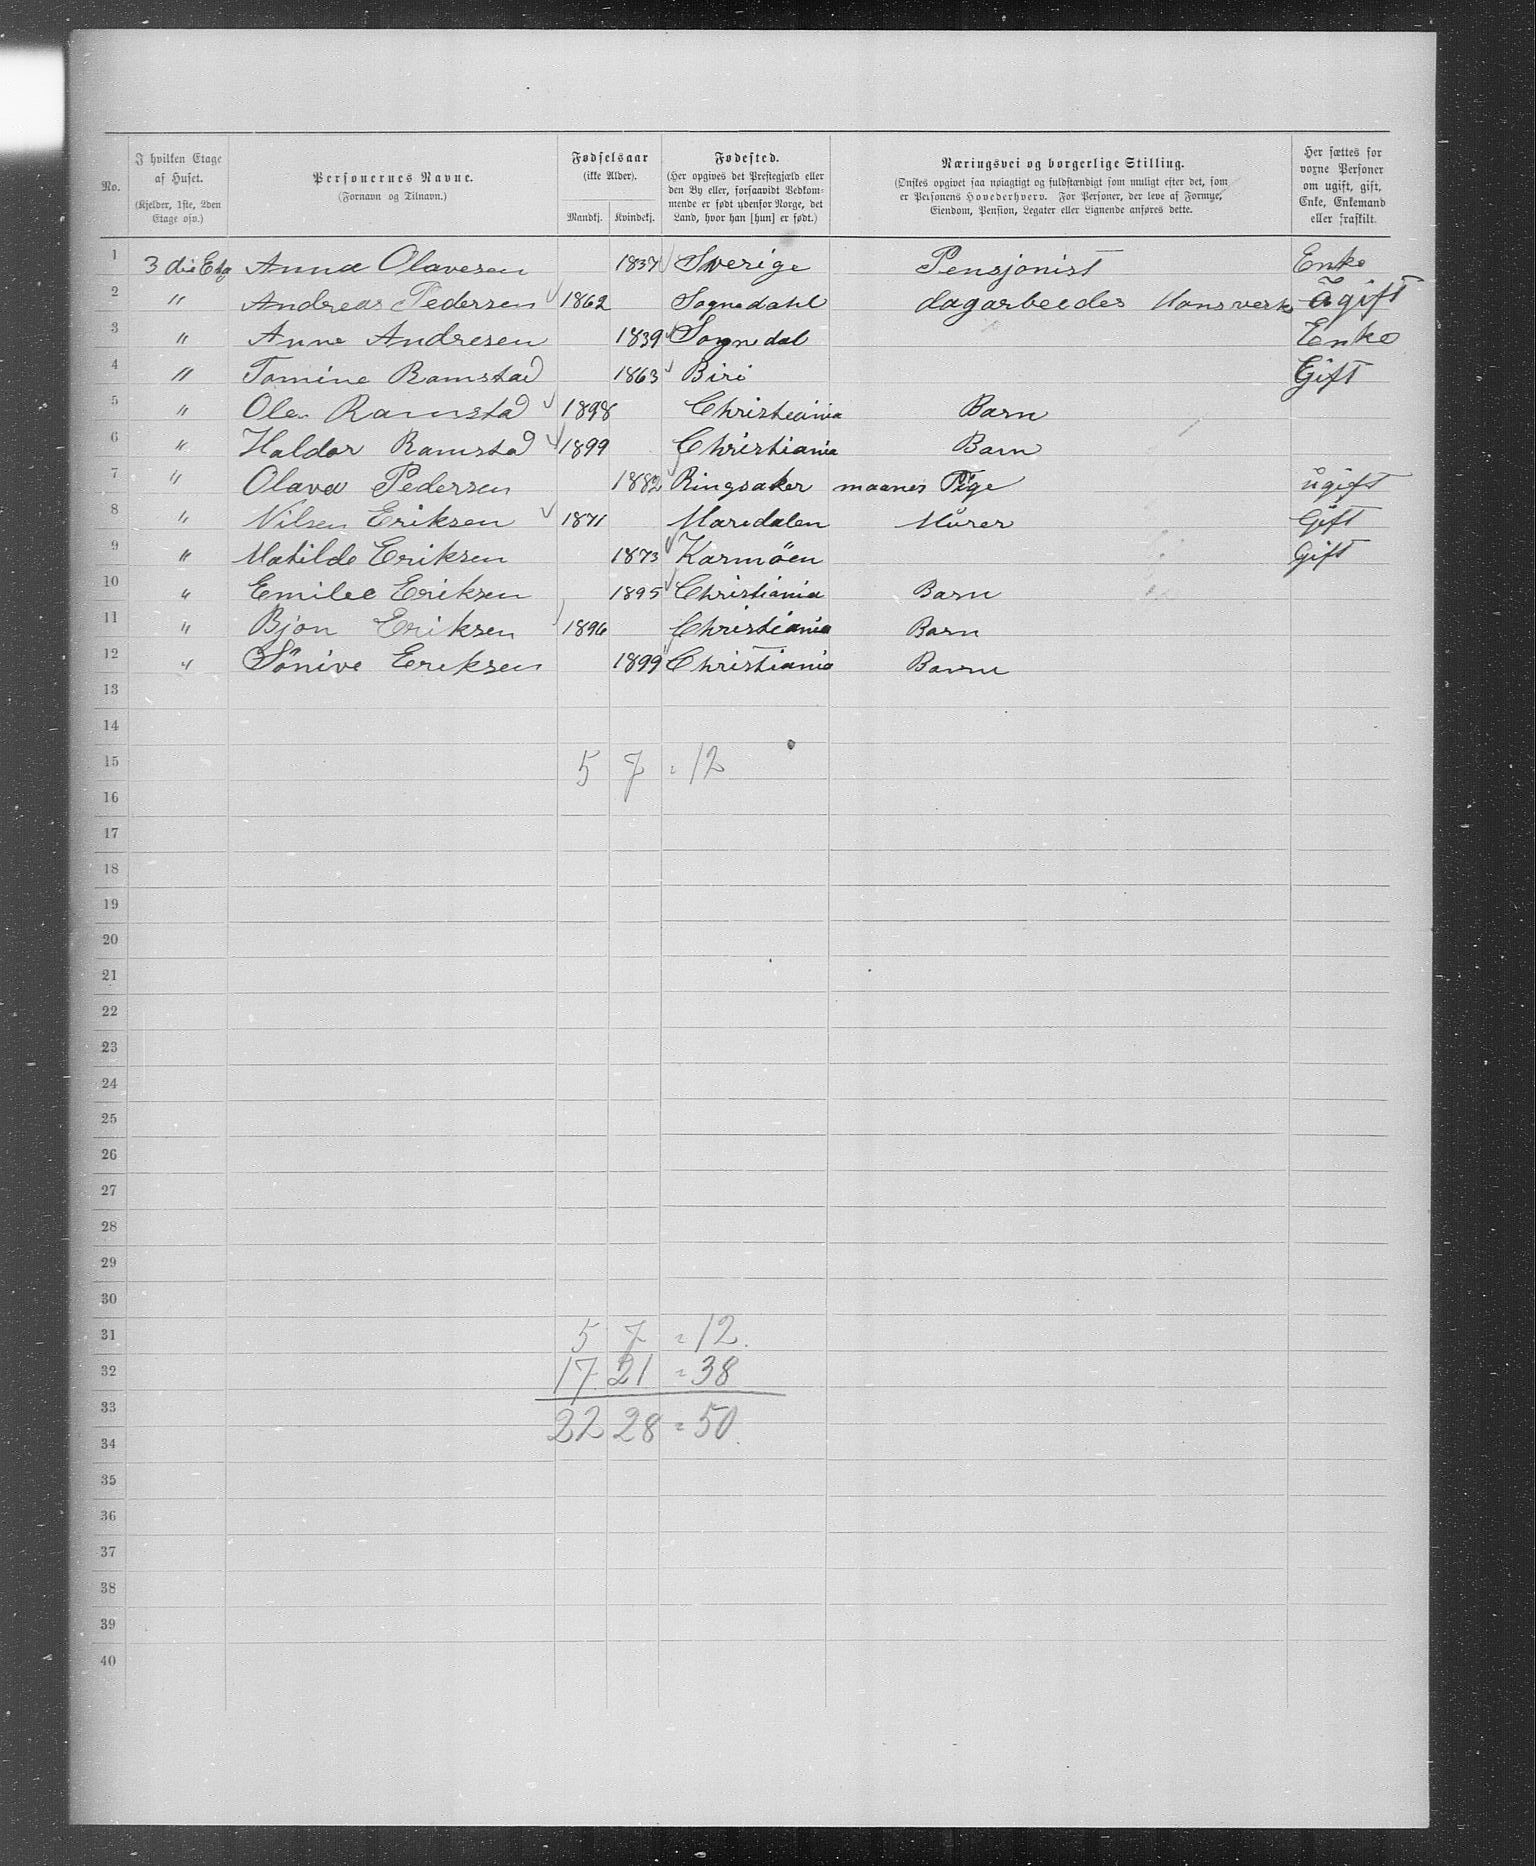 No.
I hvilken Etage af Huset. (Kjelder, 1ste, 2den Etage osv.)
Personernes Navne. (Fornavn og Tilnavn.)
Fødselsaar (ikke Alder). Mandkj. Kvindekj.
Fødested. (Her opgives det Prestegjæld eller den By eller, forsaavidt Vedkommende er født udenfor Norge, det Land, hvor han [hun] er født.)
Næringsvei og borgerlige Stilling. (Ønskes opgivet saa nøiagtigt og fuldstændigt som muligt efter det, som er Personens Hovederhverv. For Personer, der leve af Formue, Eiendom, Pension, Legater eller Lignende anføres dette.)
Her sættes for voxne Personer om ugift, gift, Enke, Enkemand eller fraskilt.
1 3 die Etg Anna Olavesen 1837 Sverige Pensjonist Enke
2 " Andreas Pedersen 1862 Sognedahl dagarbeeder Ugift
3 " Anne Andresen 1839 Sogndal Enke
4 " Tomine Ramstad 1863 Biri Gift
5 " Ola Ramstad 1898 Christiania Barn
6 " Haldor Ramstad 1899 Christiania Barn
7 " Olava Pedersen 1882 Ringsaker Pige ugift
8 " Nilsen Eriksen 1871 Maridalen Murer Gift
9 " Matilde Eriksen 1873 Karmöen Gift
10 " Emilee Eriksen 1895 Christiania Barn
11 " Bjon Eriksen 1896 Christiania Barn
12 " Sönive Eriksen 1899 Christiania Barn
13
14
15 5 7 = 12
16
17
18
19
20
21
22
23
24
25
26
27
28
29
30
31 5 7 = 12
32 17 21 = 38
33 22 28 = 50
34
35
36
37
38
39
40